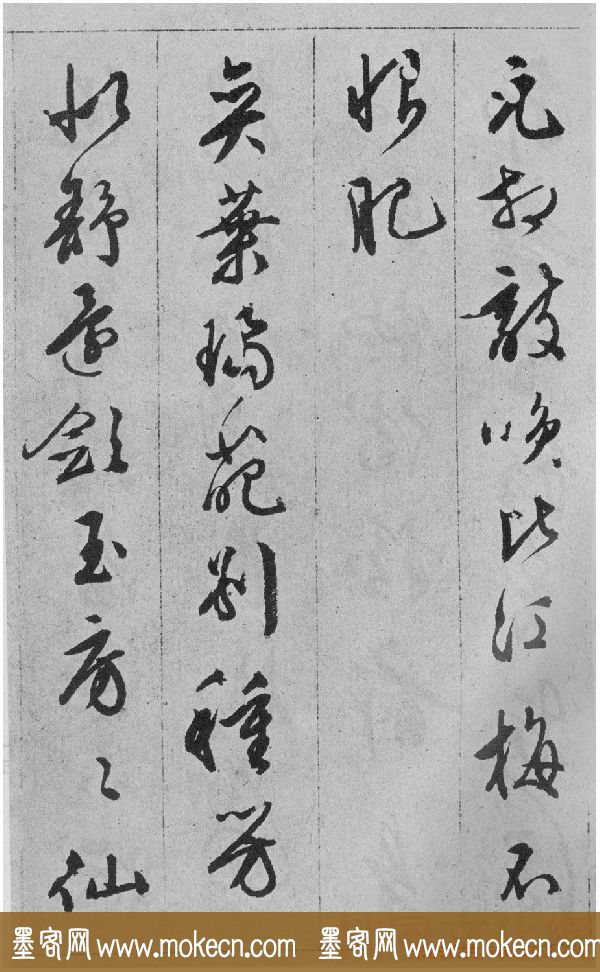 元相敵咲比江梅不
恨肥
奕葉璚葩別種芳
似舒還斂玉房〻仙
墨客网 www.mokecn.com 墨客网 www.mokecn.com